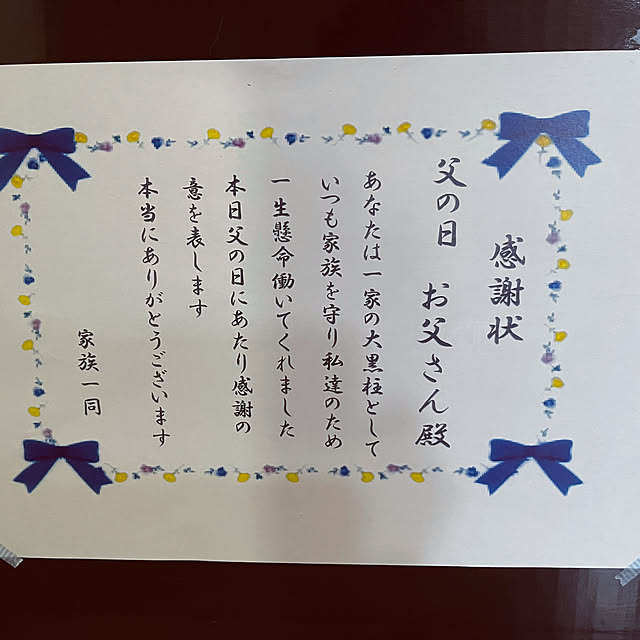 感謝状
父の日　お父さん殿
あなたは一家の大黒柱として
いつも家族を守り私達のため
一生懸命働いてくれました
本日父の日にあたり感謝の
意を表します
本当にありがとうございます
家族一同